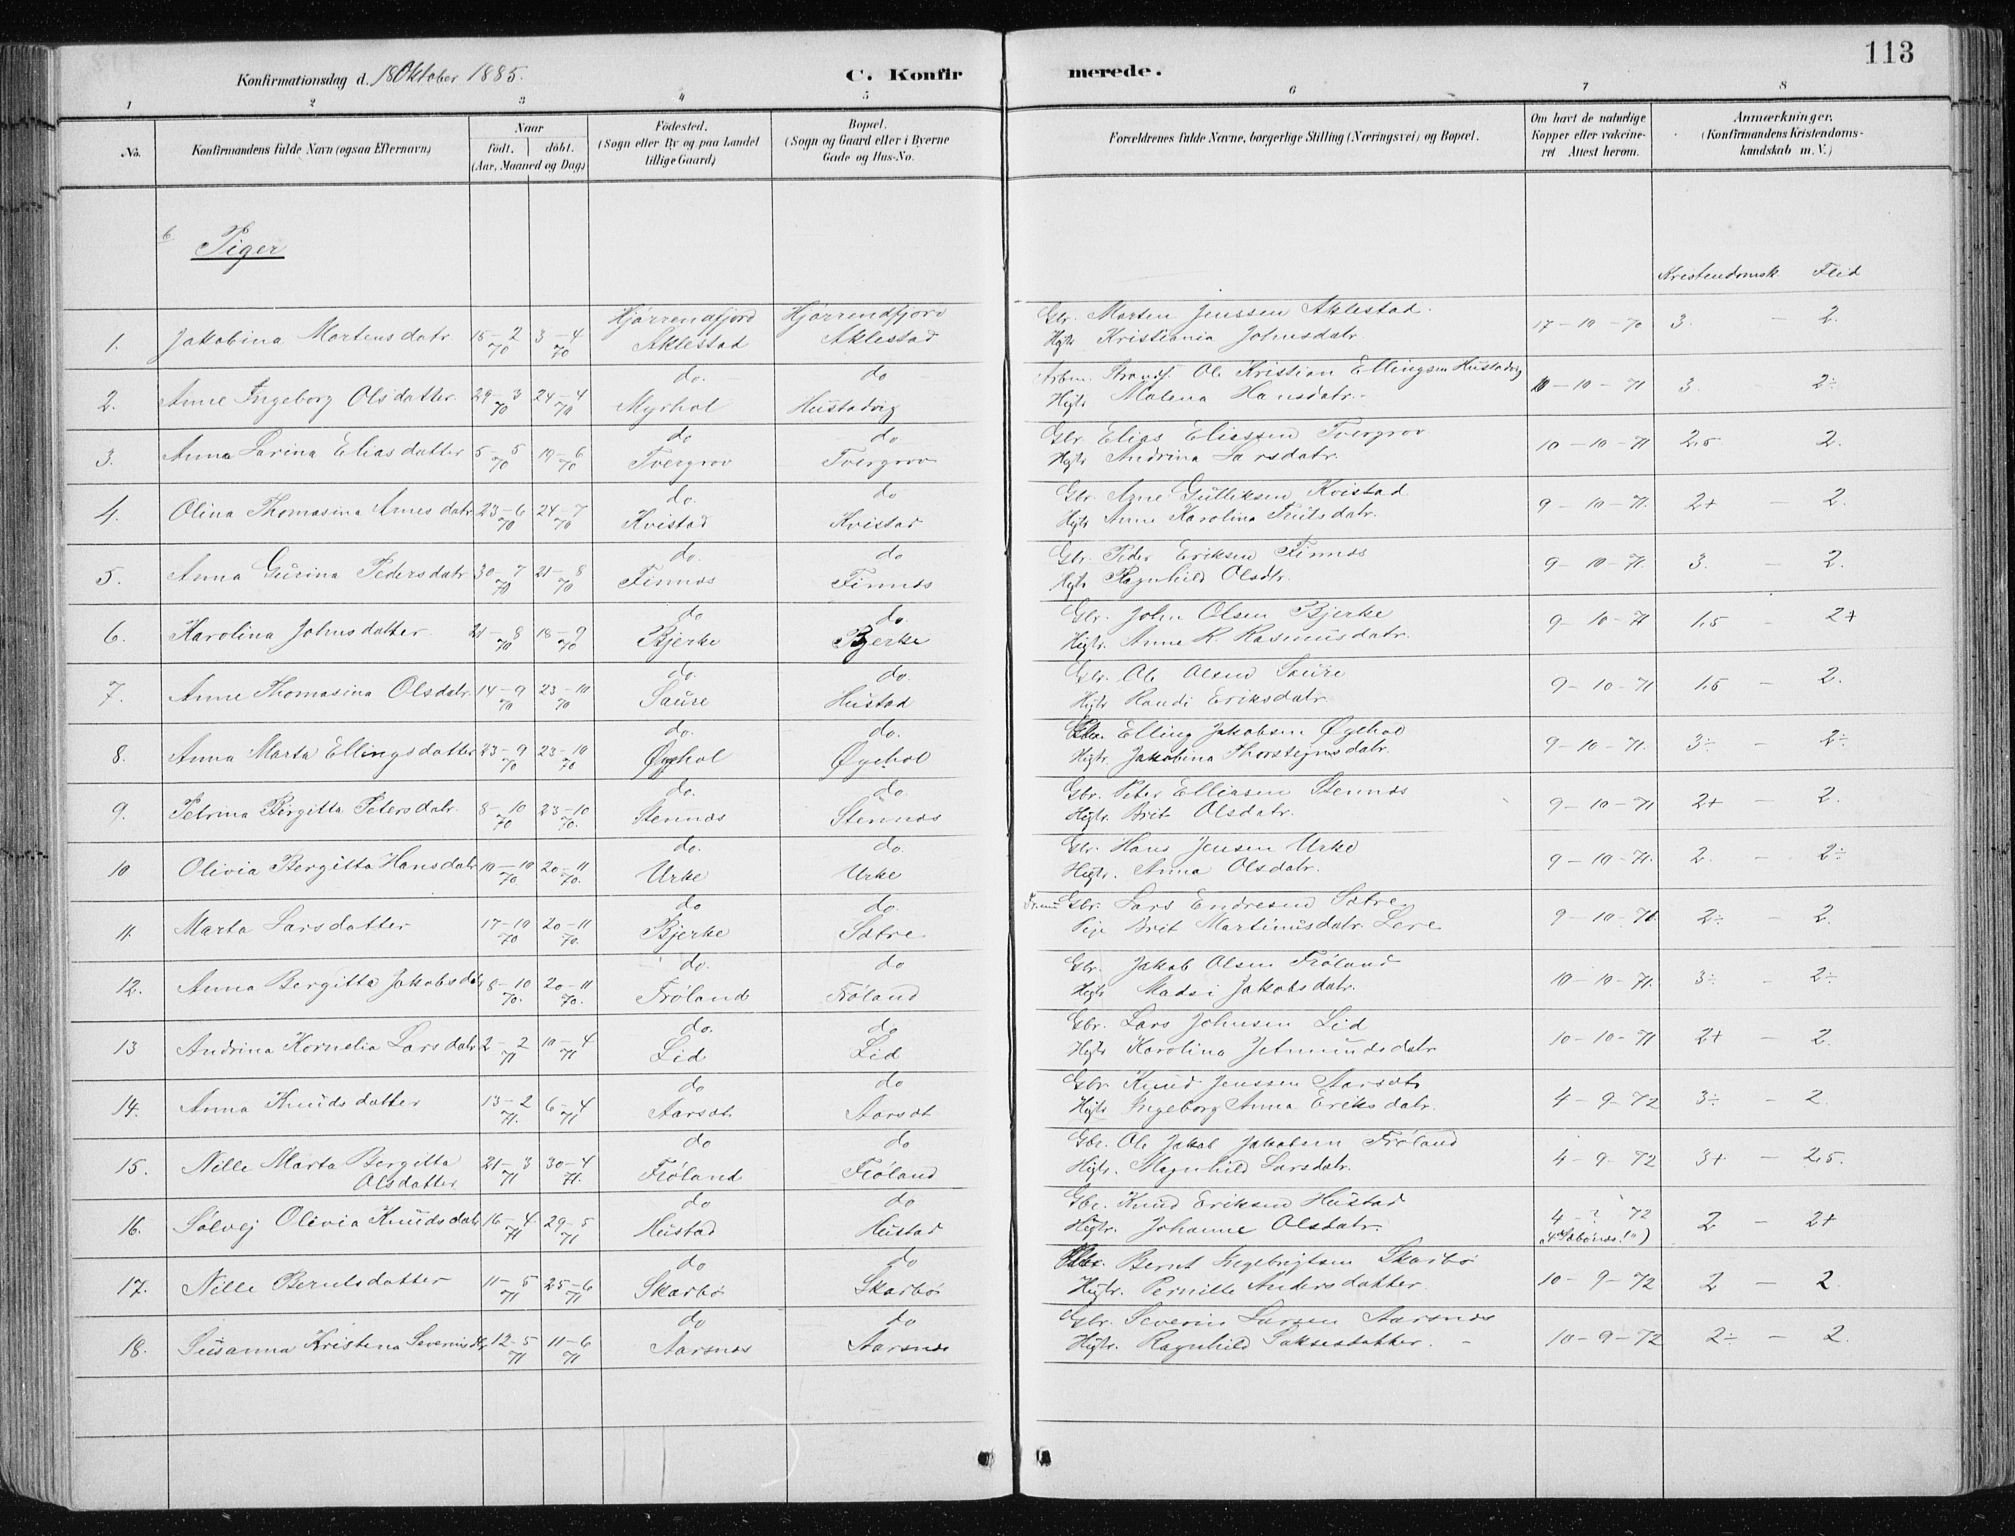 113
Konfirmationsdag d. 18 Oktober 1885.
C. Konfir merede.
1 2 3 4 5 6 7 8
No. Konfirmandens fulde Navn (ogsaa Efternavn) Naar født. døbt. (Aar, Maaned og Dag) Fødested. (Sogn eller By og paa Landet tillige Gaard) Bopæl. (Sogn og Gaard eller i Byerne Gade og Hus-No. Forældrenes fulde Navne, borgerlige Stilling (Næringsvei) og Bopæl. Om havt de naturlige Kopper eller vakcineret Attest herom. Anmærkninger. (Konfirmandens Kristendomskundskab m. V.)
Piger
Kristendomsk. Flid
1. Jakobina Martensdatr. 15-2 70 3-4 70 Hjørrendfjord Aklestad Hjørrendfjord Aklestad Gbr. Morten Jenssen Aklestad. Hgtr Kristiania Johnsdatr. 17-10-70 3. - 2.
2. Anne Ingeborg Olsdatter. 29-3 70 24-4 70 do. Myrhol do Hustadvig Arbm. Strandf. Ole Kristian Ellingsen Hustadvig Hgtr Malena Hansdatr. 10-10-71 3. 2÷
3. Anna Larina Eliasdatter 5-5 70 19-6 70 do Tvergrov do Tvergrov Gbr. Elias Eliassen Tvergrov Hgtr Andrina Larsdatr. 10-10-71 2,5 2.
4. Olina Thomasina Arnesdatr 23-6 70 24-7 70 do. Kvistad do Kvistad Gbr. Arne Gulliksen Kvistad Hgtr Anne Karolina Knutsdatr. 9-10-71. 2+ - 2.
5. Anna Gurina Pedersdatr 30-7 70 21-8 70 do. Finnes do Finnes Gbr. Peder Eriksen Finnes Hgtr Ragnhild Olsdtr. 9-10-71. 3. - 2.
6. Karolina Johnsdatter. 21-8 70 18-9 70 do Bjerke do. Bjerke Gbr. John Olsen Bjerke Hgtr. Anne R. Rasmusdatr. 9-10-71 1,5 - 2+
7. Anne Thomasina Olsdatr. 14-9 70 23-10 70 do. Saure do. Hustad Gbr. Ole Olsen Saure Hgtr Randi Eriksdatr. 9-10-71 1,5 - 2.
8. Anna Marta Ellingsdatter 23-9 70 23-10 70 do. Øyehol do. Øyehol Gbr. Elling Jakobsen Øyehol Hgtr. Jakobina Thorstejnsdatr. 9-10-71. 3÷ - 2÷
9. Petrina Birgitta Petersdatr. 8-10 70 23-10 70. do. Stennes do. Stennes Gbr. Peter Elliasen Stennes Hgtr. Brit Olsdatr. 9-10-71 2+ - 2.
10 Olivia Bergitta Hansdatr 10-10 70. 20-11 70. do. Urke do. Urke Gbr. Hans Jensen Urke Hgtr. Anna Olsdatr. 9-10-71. 2. - 2÷
11. Marta Larsdatter 17-10 70 20-11 70. do Bjerke do. Sætre Gbr. Lars Endresen Sætre Pige Brit Martinusdatr. Lere 9-10-71. 2÷ - 2.
12. Anna Bergitta Jakobsdtr 8-10 70. 20-11 70. do. Frøland do Frøland Gbr. Jakob Olsen Frøland Hgtr Madsi Jakobsdatr. 10-10-71. 3÷ - 2÷
13 Andrina Kornelia Larsdatr 2-2 71 10-4 71 do. Lid do Lid Gbr. Lars Johnsen Lid Hgtr Karolina Jetmundsdatr. 10-10-71 2+ - 2.
14. Anna Knudsdatter 13-2 71. 6-4 71 do Aarset do Aarset Gbr Knud Jenssen Aarset Hgtr Ingeborg Anna Eriksdatr. 4-9-72 3÷ - 2.
15. Nille Marta Bergitta Olsdatter 21-3 71 30-4 71. do Frøland do Frøland Gbr. Ole Jakob Jakobsen Frøland Hgtr. Magnhild Larsdatr. 4-9-72 3+ - 2,5.
16. Solvej Olivia Knudsdatr 16-4 71 29-5 71 do Hustad do Hustad Gbr. Knud Eriksen Hustad Hgtr. Johanne Olsdatr. 4-?-72 2 - 2+
17. Nille Berntsdatter 11-5 71 25-6 71 do Skarbø do Skarbø Gbr. Bernt Ingebrigtsen Skarbø Hgtr. Pernille Andersdatter. 10-9-72 2 - 2
18. Susanna Kristena Severinsdtr 12-5 71 11-6 71 do Aarsnes do Aarsnes Gbr. Severin Larsen Aarsnes Hgtr. Ragnhild Saksesdatter. 10-9-72 2÷ - 2.